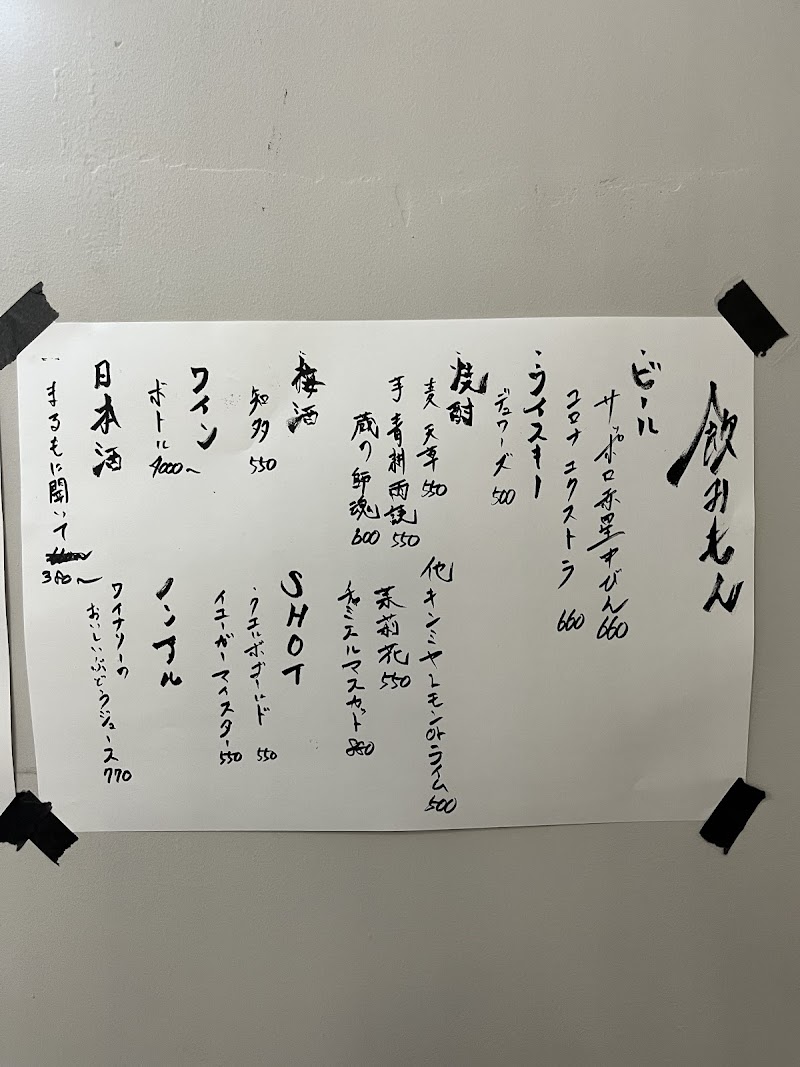 飲みもん
ビール
サッポロ赤星中びん 660
コロナ エクストラ 660
ウイスキー
デュワーズ 500
焼酎
麦 天草 550
芋 青掛雨読 550
蔵の師魂 600
他 キンミヤレモンorライム 500
茉莉花 550
ミエルマスカット 880
梅酒
知多 550
SHOT
クエルボゴールド 550
イエーガーマイスター 550
ワイン
ボトル 4000〜
ノンアル
ワイナリーの
おいしいぶどうジュース 770
日本酒
まるもに聞いて
380〜